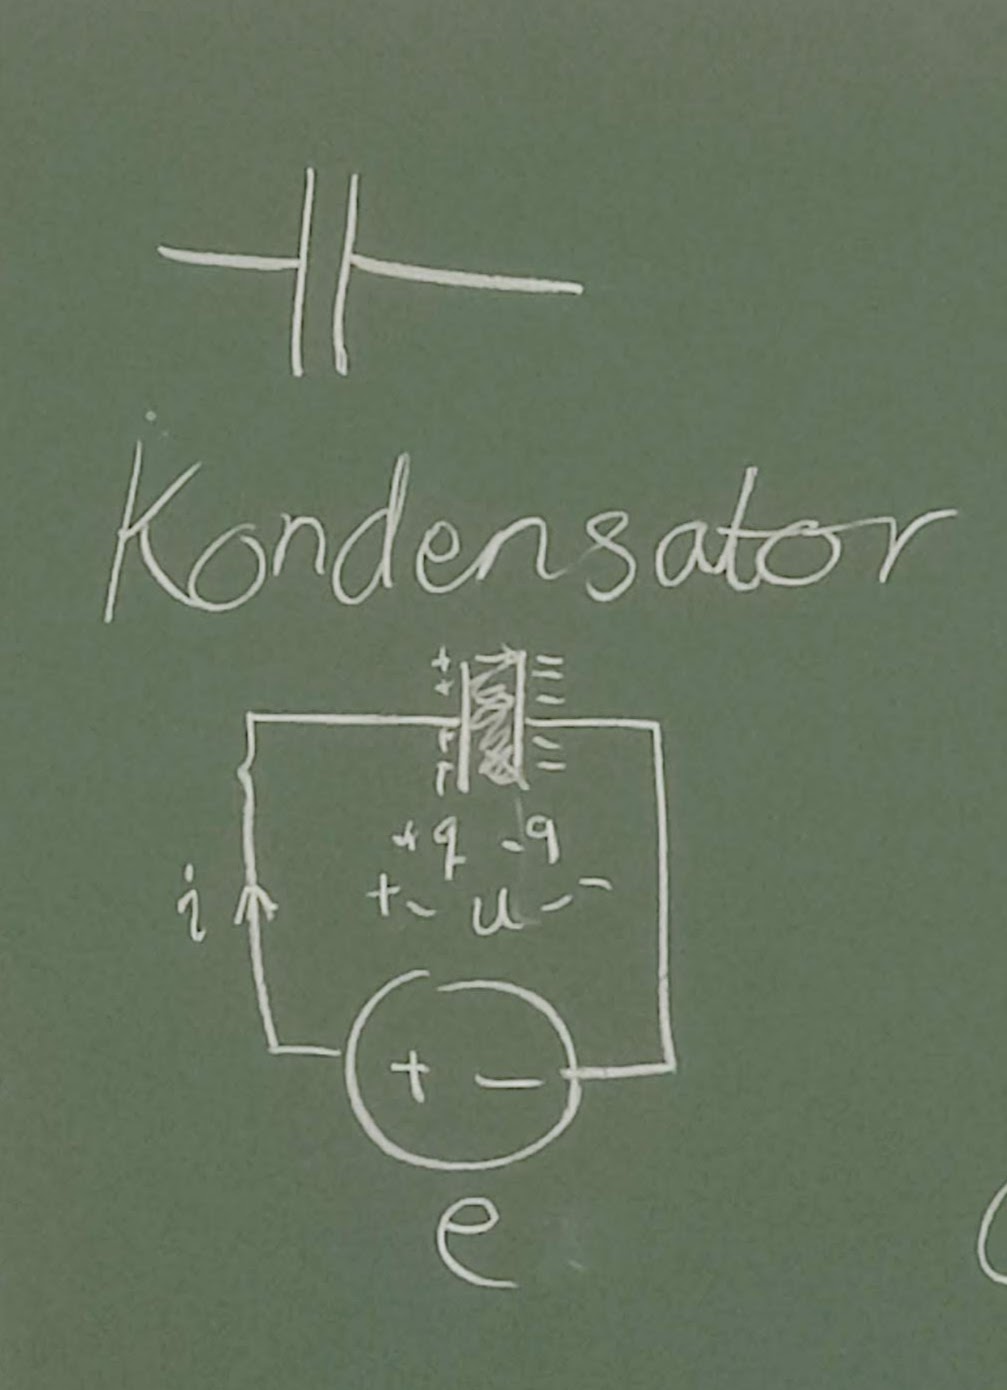 Kondensator
+ =
+ -
+ -
+ -
+q -q
+- u --
i
+ -
e